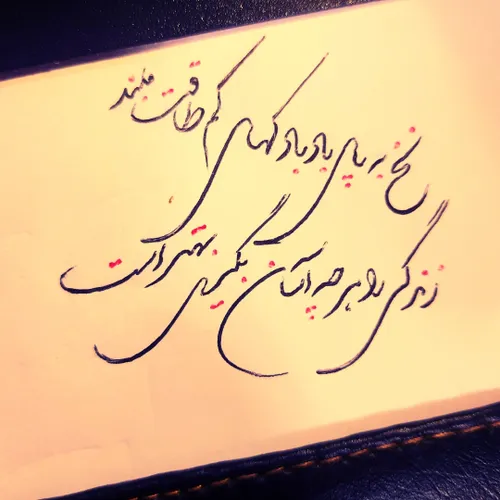 نخ به پای بادبادکهای کم طاقت مبند
زندگی را هر چه آسان بگیری بهتر است